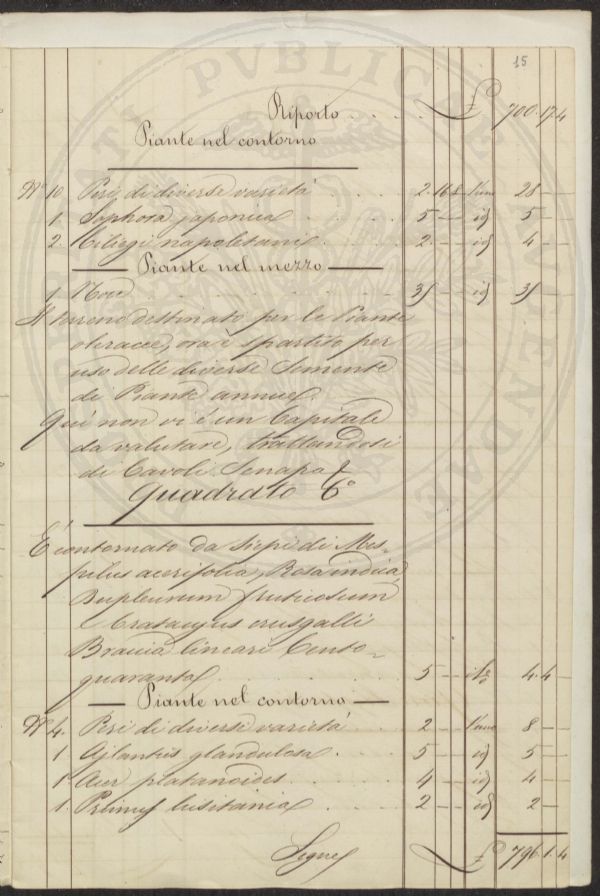 15
Riporto . . . . . £ 700.17.4
Piante nel contorno
N° 10. Peri di diverse varietà . . . . 2.16.8 l'uno 28 — —
1. Sophora japonica . . . . 5 — — id 5 — —
2. Ciliegi napoletani . . . . 2 — — id 4 — —
Piante nel mezzo
1 Noce . . . . 35 — id 35 — —
Il terreno destinato per le Piante
oleracee, ora è spartito per
uso delle diverse Semente
di Piante annue.
Qui non vi è un Capitale
da valutare, trattandosi
di Cavoli. Senapa
Quadrato 6°
È contornato da siepi di Mes-
pilus acerifolia, Rosa indica,
Bupleurum fruticosum
e Crataegus crusgalli
Braccia lineari Cento-
quaranta . . . . 5 — 4.4 —
Piante nel contorno
N° 4. Peri di diverse varietà . . 2 — — l'uno 8 — —
1 Ajlantus glandulosa . . 5 — — id 5 — —
1. Acer platanoides . . . . 4 — — id 4 — —
1. Prunus lusitanica . . . . 2 — — id 2 —
Segue £ 796.1.4
PUBLICAE